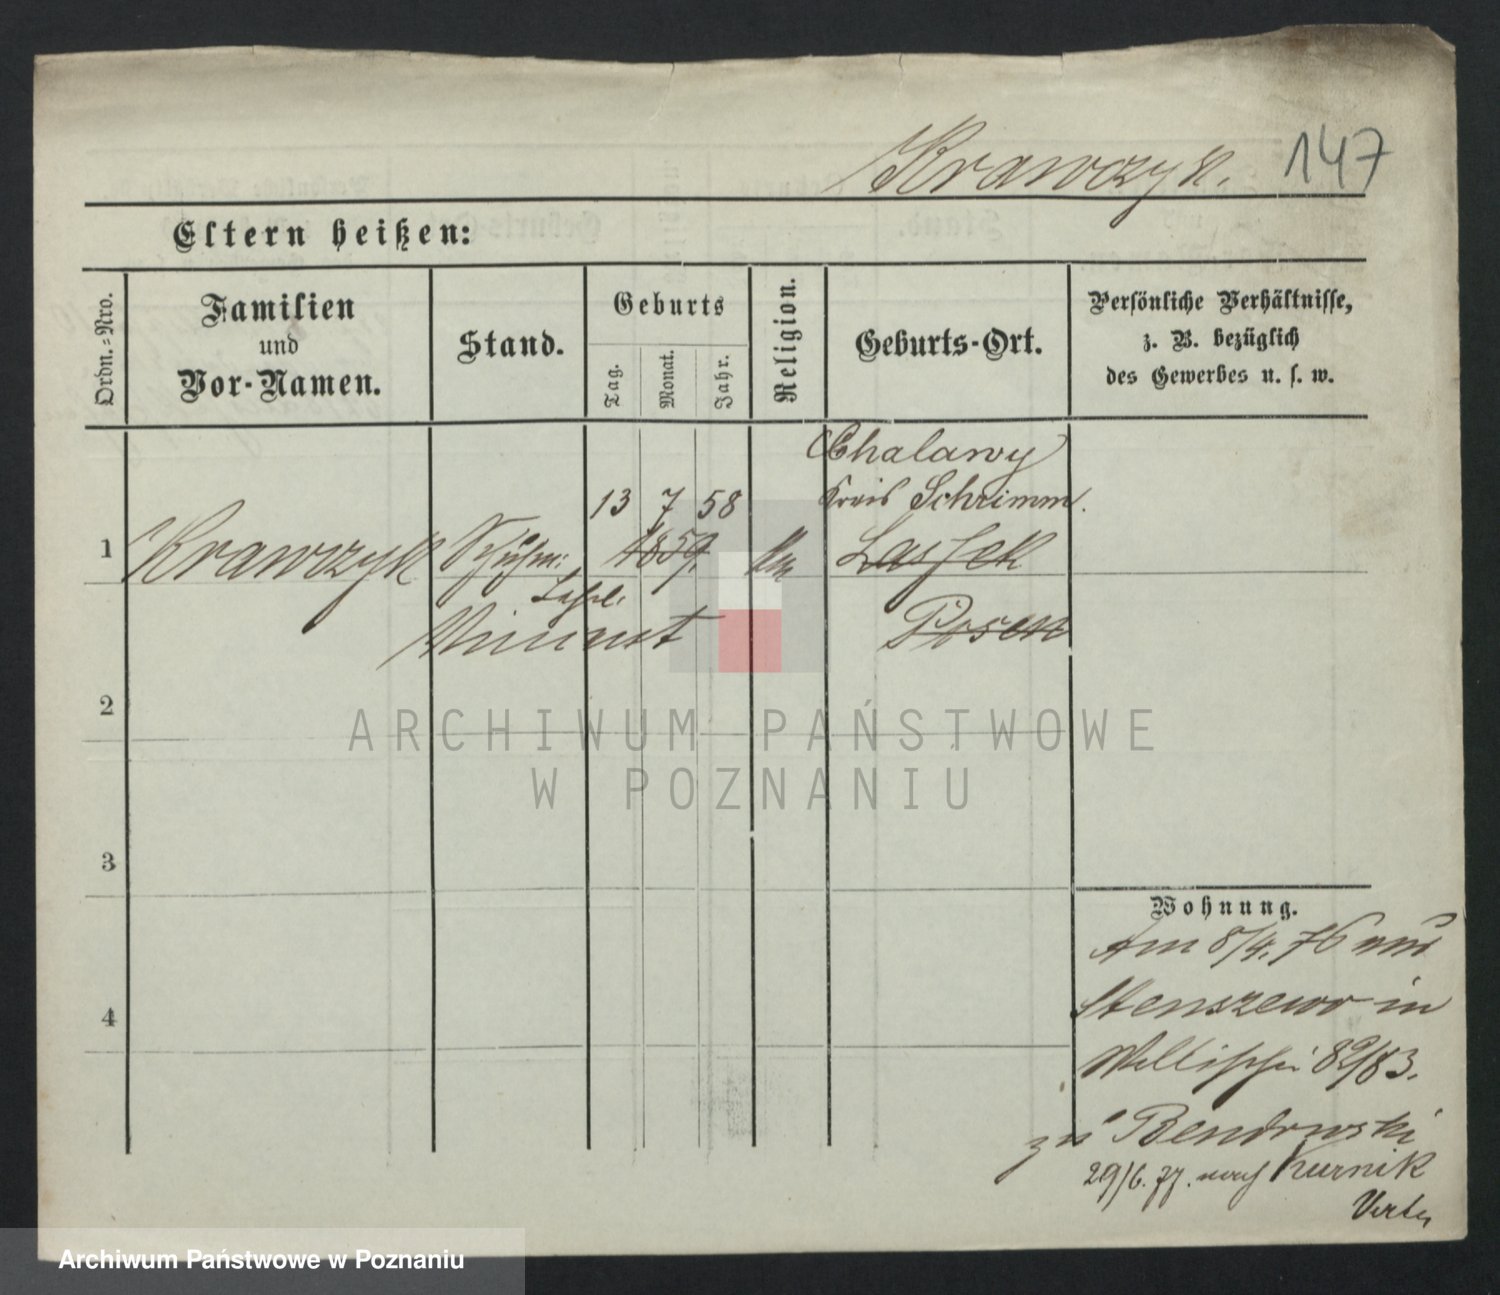 Krawczyk. 147
Eltern heißen:
Ordn.-Nro.
Familien
und
Vor-Namen.
Stand.
Geburts
Tag.
Monat.
Jahr.
Religion.
Geburts-Ort.
Persönliche Verhältnisse,
z. B. bezüglich
des Gewerbes u. s. w.
Chalawy
13 7 58 Kreis Schrimm.
1 Krawczyk Schuhm: 1859. Lassek
Lehrl.
Vincent Posen
2
3
4
Wohnung.
Am 8/4. 76 aus
Stenszewo in
Wallischei 82/83.
zu Bendowski
29/6. 77. nach Kurnik
ARCHIWUM PAŃSTWOWE
W POZNANIU
Archiwum Państwowe w Poznaniu